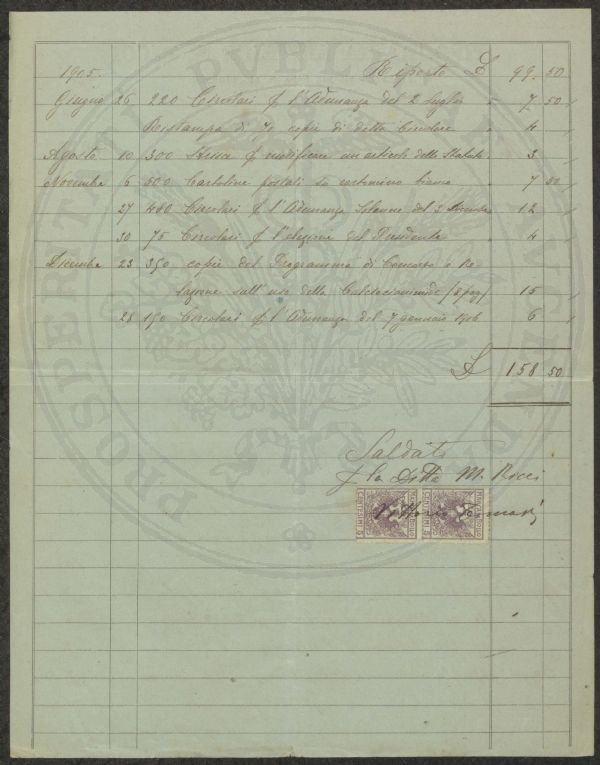 1905. Riporto £ 99. 50
Giugno 26 220 Circolari p l'Adunanza del 2 Luglio " 7 50
Ristampa di 70 copie di detta Circolare " 4
Agosto 10 300 p notificare un articolo dello Statuto " 3
Novembre 6 500 Cartoline postali su cartoncino bianco " 7 50
27 480 Circolari p l'Adunanza Solenne del 3 Dicembre 12
30 75 Circolari p l'elezione del Presidente " 4
Dicembre 23 350 copie del Programma di Concorso e Re-
lazione sull'uso della Calciocianamide 15
28 150 Circolari p l'Adunanza del 7 gennaio 1906 6
£ 158 50
Saldato
p la Ditta M. Ricci
Vittorio
MARCA DA BOLLO
CENTESIMI 5
MARCA DA BOLLO
CENTESIMI 5
PROSPERITATI PVBLICAE AVGENDAE